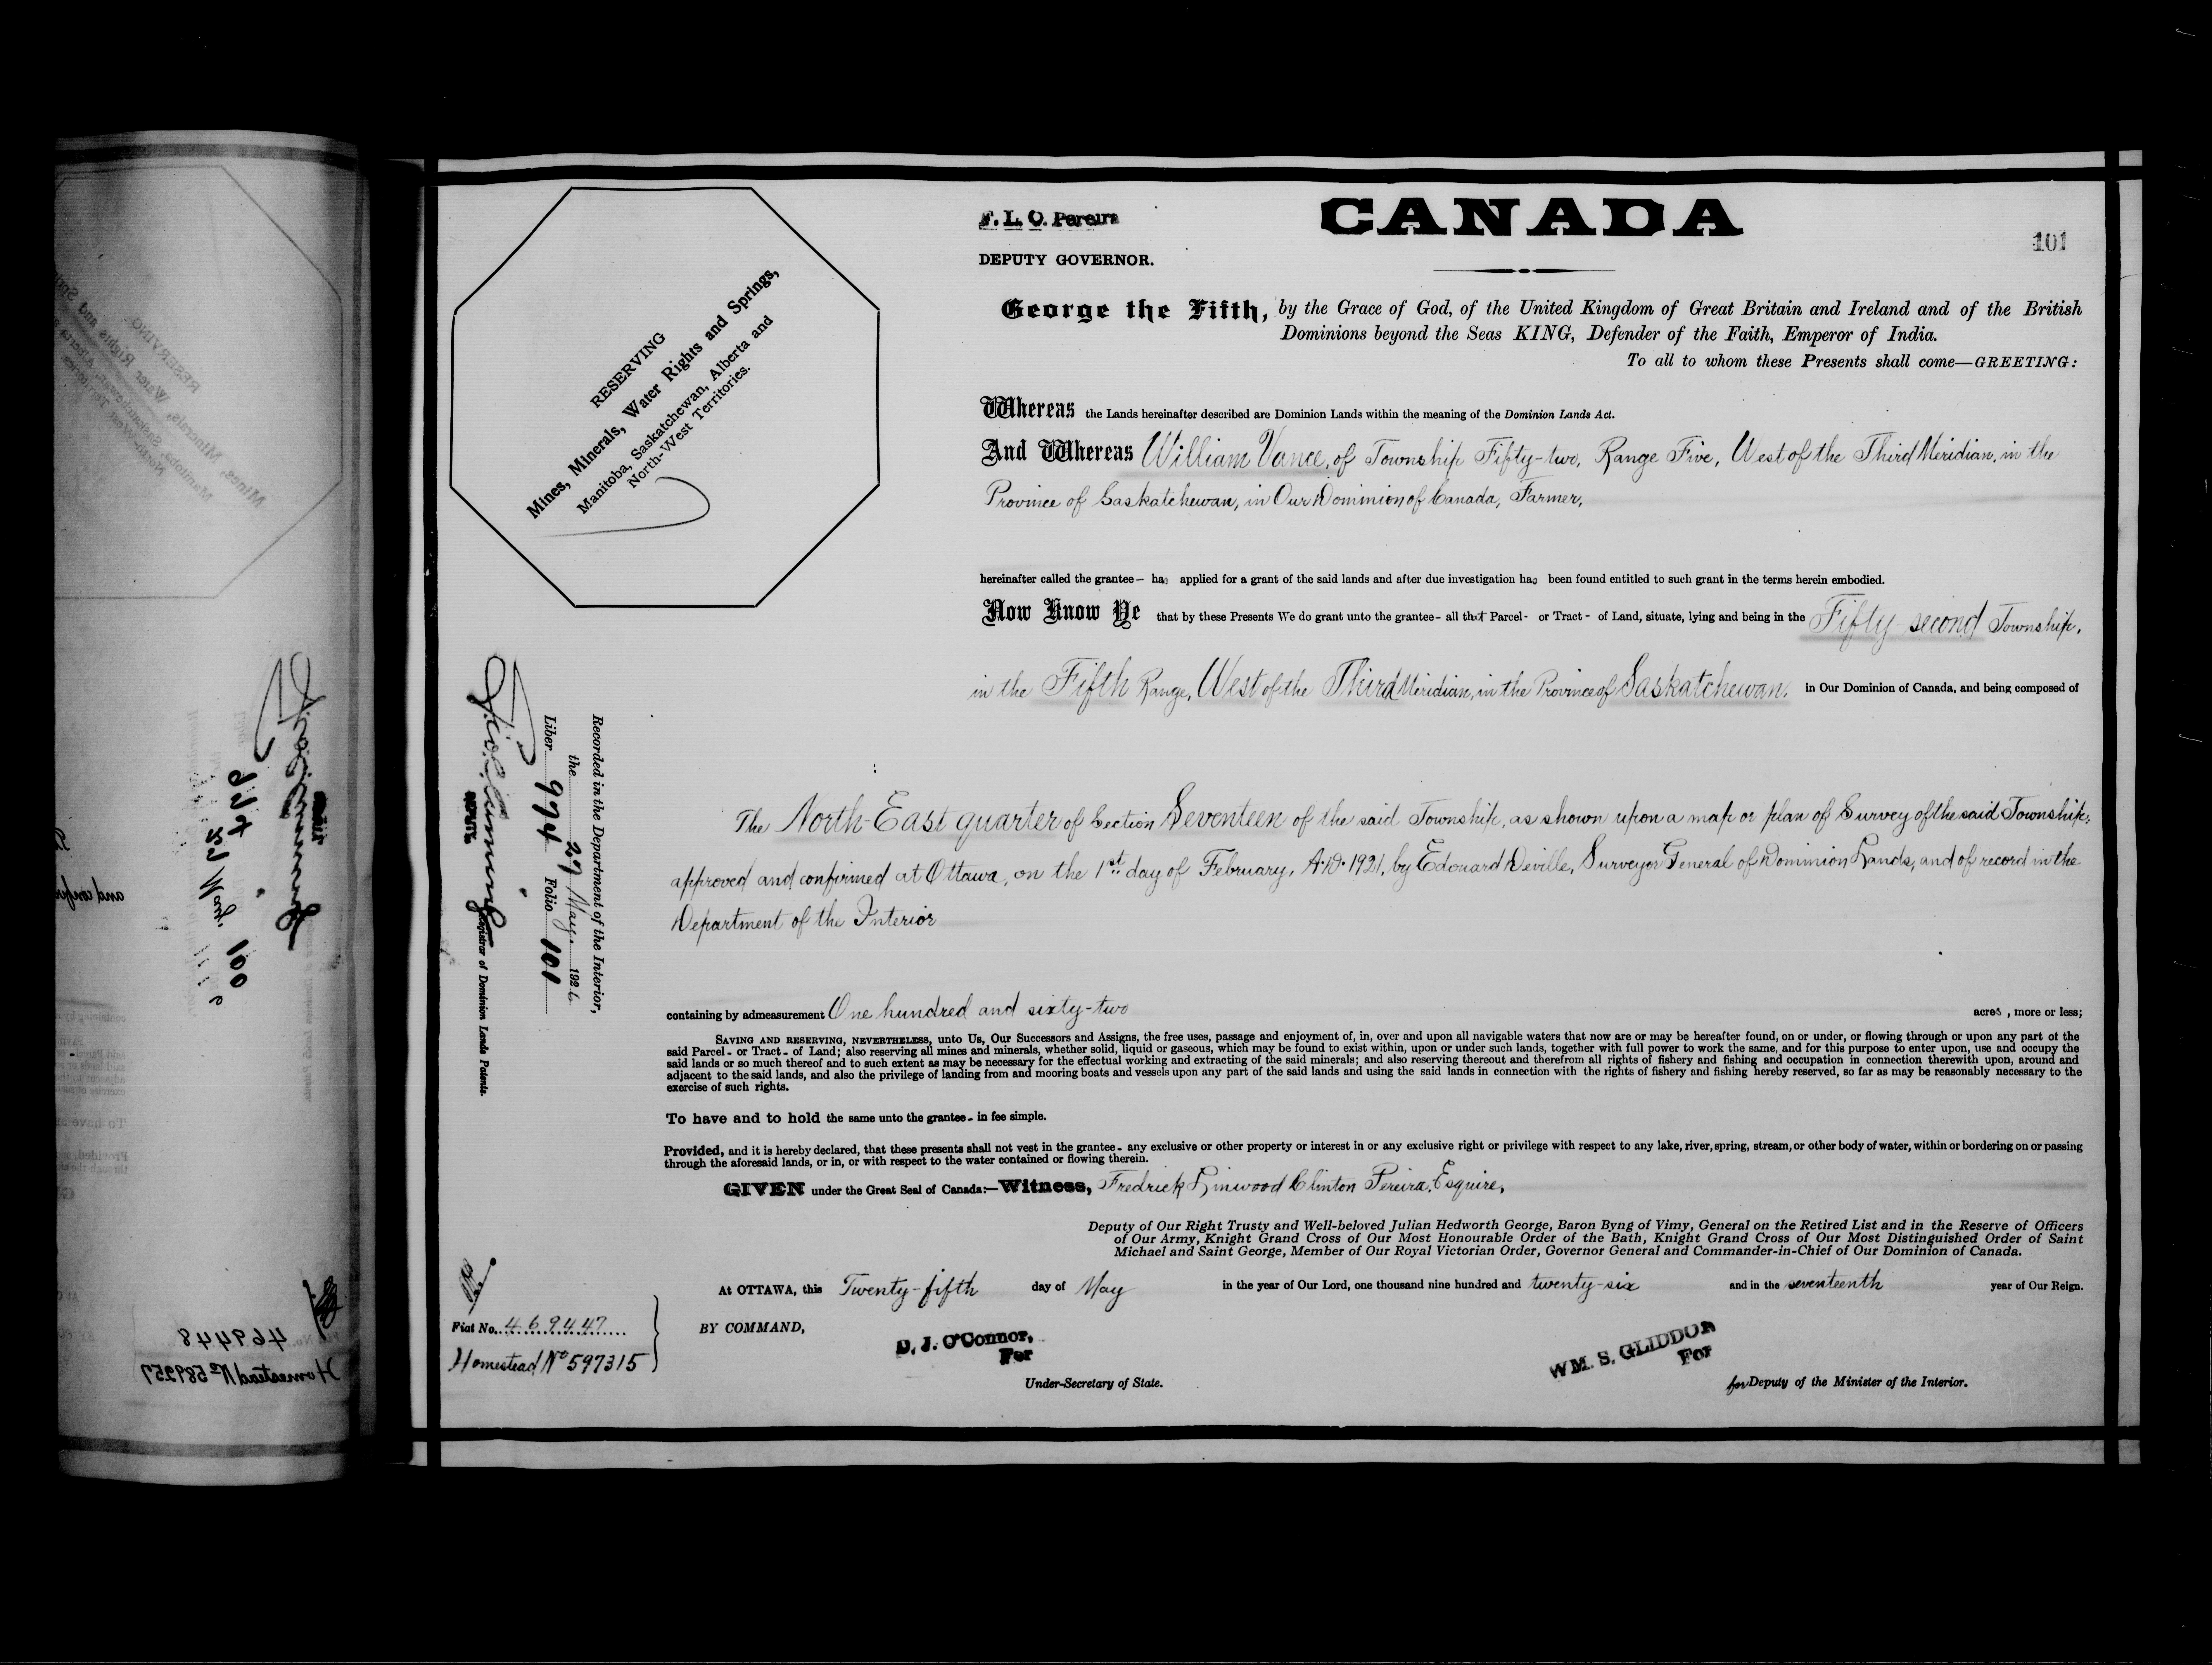 F. L. C. Pereira
CANADA
101
DEPUTY GOVERNOR.
George the Fifth, by the Grace of God, of the United Kingdom of Great Britain and Ireland and of the British
Dominions beyond the Seas KING, Defender of the Faith, Emperor of India.
To all to whom these Presents shall come—GREETING:
RESERVING
Mines, Minerals, Water Rights and Springs,
Manitoba, Saskatchewan, Alberta and
North-West Territories.
Whereas the Lands hereinafter described are Dominion Lands within the meaning of the Dominion Lands Act.
And Whereas William Vance, of Township Fifty-two, Range Five, West of the Third Meridian, in the
Province of Saskatchewan, in Our Dominion of Canada, Farmer,
hereinafter called the grantee - has applied for a grant of the said lands and after due investigation has been found entitled to such grant in the terms herein embodied.
Now Know Ye that by these Presents We do grant unto the grantee - all that Parcel - or Tract - of Land, situate, lying and being in the Fifty-second Township,
in the Fifth Range, West of the Third Meridian, in the Province of Saskatchewan, in Our Dominion of Canada, and being composed of
The North-East quarter of Section Seventeen of the said Township, as shown upon a map or plan of Survey of the said Township,
approved and confirmed at Ottawa, on the 1st day of February, A.D. 1921, by Edouard Deville, Surveyor General of Dominion Lands, and of record in the
Department of the Interior
Recorded in the Department of the Interior,
the 29 May, 1926
Liber 974 Folio 101
DEPUTY Registrar of Dominion Lands Patents.
containing by admeasurement One hundred and sixty-two acres, more or less;
SAVING AND RESERVING, NEVERTHELESS, unto Us, Our Successors and Assigns, the free uses, passage and enjoyment of, in, over and upon all navigable waters that now are or may be hereafter found, on or under, or flowing through or upon any part of the
said Parcel - or Tract - of Land; also reserving all mines and minerals, whether solid, liquid or gaseous, which may be found to exist within, upon or under such lands, together with full power to work the same, and for this purpose to enter upon, use and occupy the
said lands or so much thereof and to such extent as may be necessary for the effectual working and extracting of the said minerals; and also reserving thereout and therefrom all rights of fishery and fishing and occupation in connection therewith upon, around and
adjacent to the said lands, and also the privilege of landing from and mooring boats and vessels upon any part of the said lands and using the said lands in connection with the rights of fishery and fishing hereby reserved, so far as may be reasonably necessary to the
exercise of such rights.
To have and to hold the same unto the grantee - in fee simple.
Provided, and it is hereby declared, that these presents shall not vest in the grantee - any exclusive or other property or interest in or any exclusive right or privilege with respect to any lake, river, spring, stream, or other body of water, within or bordering on or passing
through the aforesaid lands, or in, or with respect to the water contained or flowing therein.
GIVEN under the Great Seal of Canada:—Witness, Fredrick Linwood Clinton Pereira, Esquire,
Deputy of Our Right Trusty and Well-beloved Julian Hedworth George, Baron Byng of Vimy, General on the Retired List and in the Reserve of Officers
of Our Army, Knight Grand Cross of Our Most Honourable Order of the Bath, Knight Grand Cross of Our Most Distinguished Order of Saint
Michael and Saint George, Member of Our Royal Victorian Order, Governor General and Commander-in-Chief of Our Dominion of Canada.
At OTTAWA, this Twenty-fifth day of May in the year of Our Lord, one thousand nine hundred and twenty-six and in the seventeenth year of Our Reign.
Fiat No. 469447
Homestead No 597315
BY COMMAND,
D. J. O'Connor,
For
Under-Secretary of State.
WM. S. GLIDDON
For
for Deputy of the Minister of the Interior.